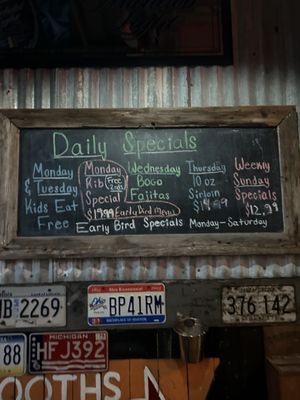 Daily Specials
Monday
& Tuesday
Kids Eat
Free
Monday
Rib
Special
$19.99
Free
Early Bird Menu
Wednesday
BOGO
Fajitas
Thursday
10 oz
Sirloin
$14.99
Weekly
Sunday
Specials
$12.99
Early Bird Specials Monday-Saturday
2269
BP41RM
376 142
88
HFJ392
MICHIGAN
OOTHS